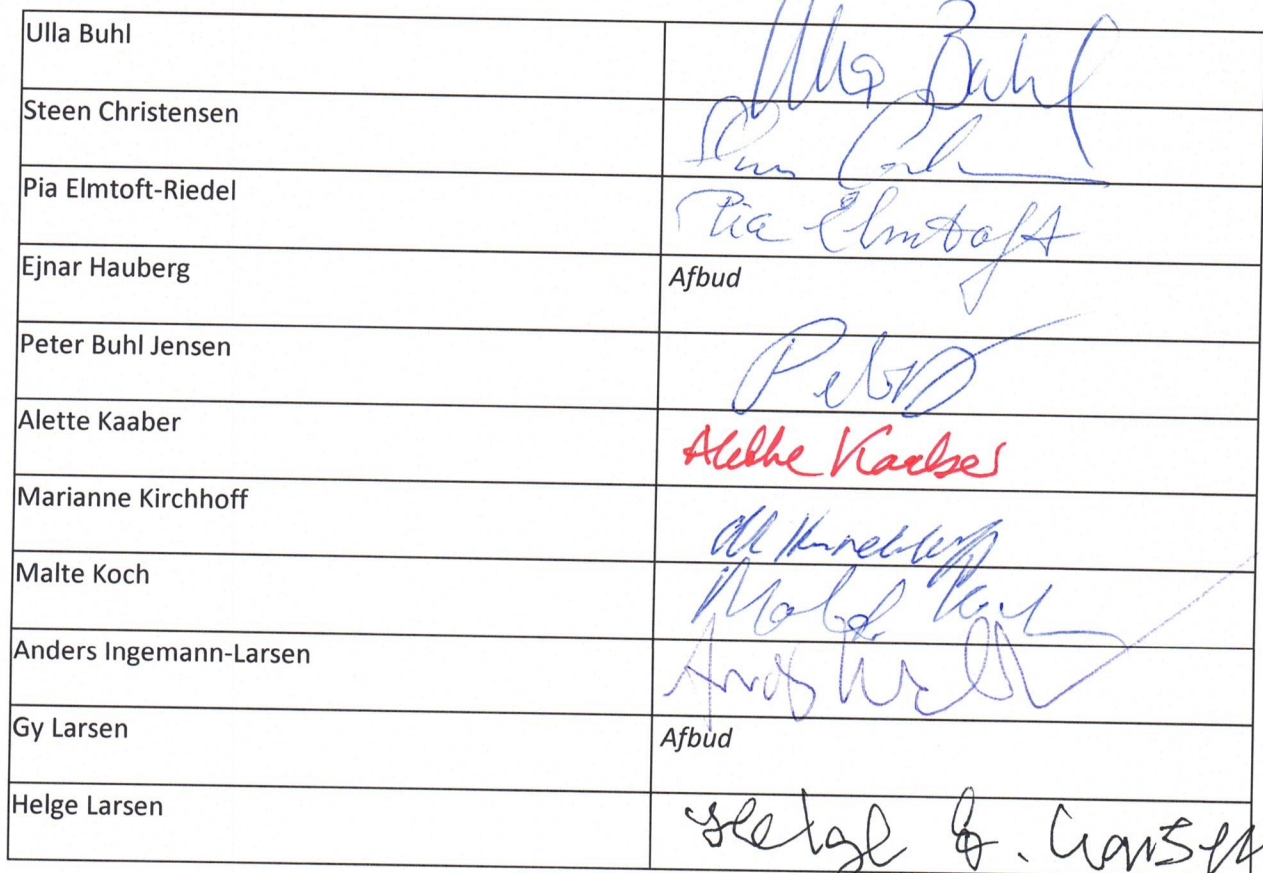 Ulla Buhl Ulla Buhl
Steen Christensen
Pia Elmtoft-Riedel Pia Elmtoft
Ejnar Hauberg Afbud
Peter Buhl Jensen
Alette Kaaber Alethe Kaaber
Marianne Kirchhoff
Malte Koch Malte Koch
Anders Ingemann-Larsen
Gy Larsen Afbud
Helge Larsen Helge G. Larsen